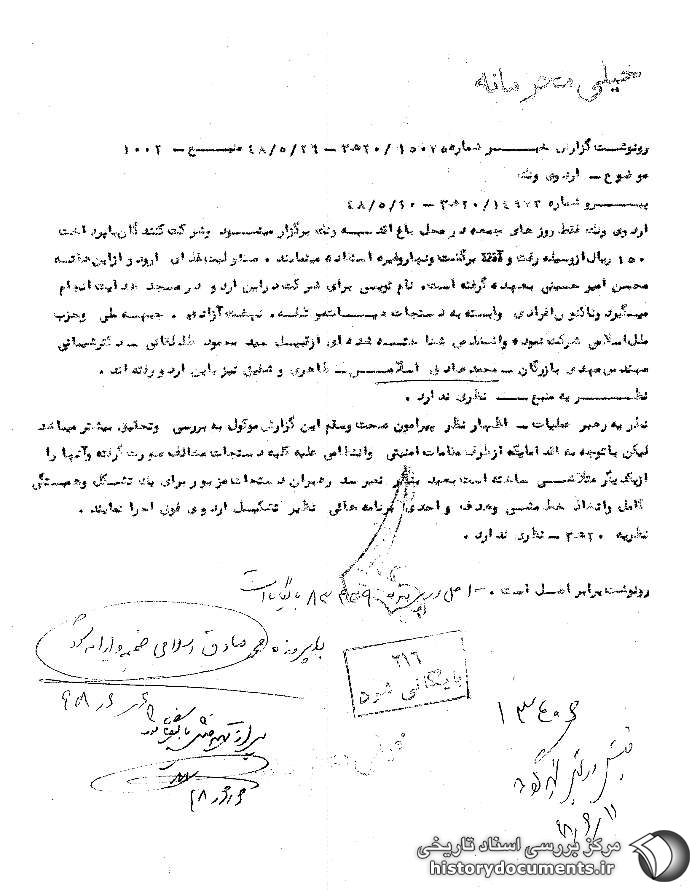 خیلی محرمانه
رونوشت گزارش خبر شماره ۱۵۰۷۵/ ۲۰ه۳ – ۴۸/۵/۲۶ منبع – ۱۰۰۲
موضوع – اردوی ونک
پیرو شماره ۱۴۹۷۳/ ۲۰ه۳ – ۴۸/۵/۲۰
اردوی ونک فقط روزهای جمعه در محل باغ اقدسیه ونک برگزار میشود وشرکت کنندگان با پرداخت
۱۵۰ ریال از وسیله رفت و برگشت ونهار وغیره استفاده مینمایند . مسئولیت غذای اردو را از این هفته
محسن امیر حسینی بعهده گرفته است. نام نویسی برای شرکت در این اردو در مسجد هدایت انجام
میگیرد وتاکنون افرادی وابسته به دستجات نهضت آزادی ، جبهه ملی وحزب
ملل اسلامی شرکت نموده واشخاص شناخته شده ای از قبیل سید محمود طالقانی – دکتر شیبانی
مهندس مهدی بازرگان – محمد صادق اسلامی – طاهری و شفیق نیز باین اردو رفته اند .
نظریه منبع – نظری ندارد .
نظریه رهبر عملیات – اظهار نظر پیرامون صحت وسقم این گزارش موکول به بررسی وتحقیق بیشتر میباشد
لیکن با توجه به اقداماتیکه از طرف مقامات امنیتی وانتظامی علیه کلیه دستجات مخالف صورت گرفته وآنها را
از یکدیگر متلاشی ساخته است بعید بنظر نمیرسد رهبران دستجات مزبور برای یک تشکل وهمبستگی
کامل واتخاذ خط مشی وهدف واحدی برنامه هائی نظیر تشکیل اردوی فوق اجرا نمایند .
نظریه ۲۰ه۳ – نظری ندارد .
رونوشت برابر اصل است . – اصل در پرونده ۸۳۹۳۹ بایگانی است
به پرونده محمد صادق اسلامی ضمیمه و ارائه گردد
۳۱۶
بایگانی شود
۱۳۴۰۶
مرکز بررسی اسناد تاریخی
historydocuments.ir